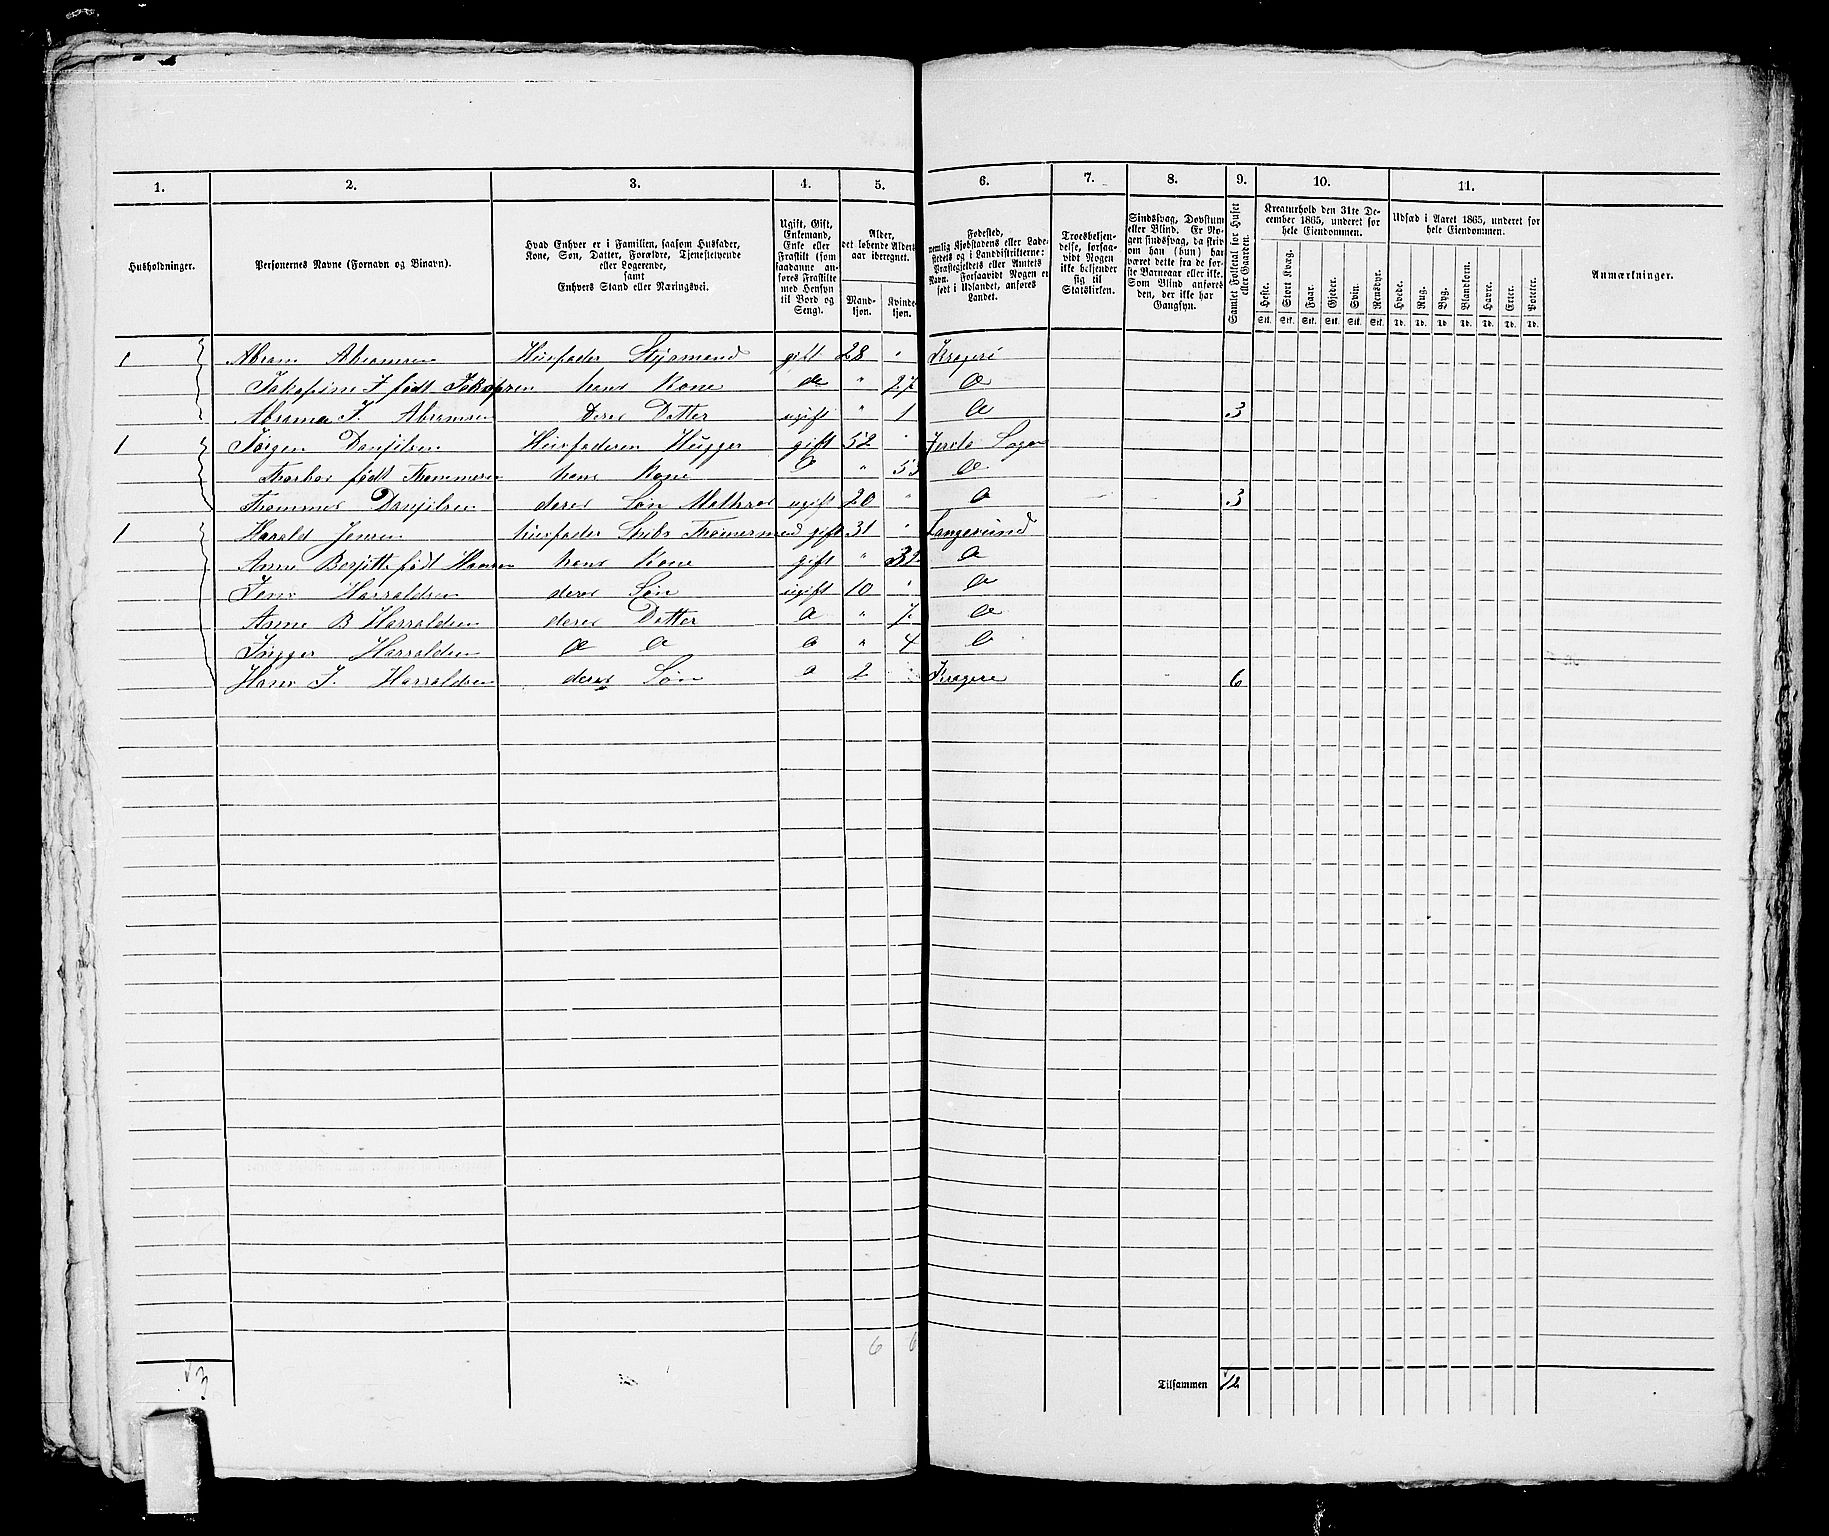 1. 2. 3. 4. 5. 6. 7. 8. 9. 10. 11.
Husholdninger.
Personernes Navne (Fornavn og Binavn).
Hvad Enhver er i Familien, saasom Husfader,
Kone, Søn, Datter, Forældre, Tjenestetyende
eller Logerende,
samt
Enhvers Stand eller Næringsvei.
Ugift, Gift,
Enkemand,
Enke eller
Fraskilt (som
saadanne an-
føres Fraskilte
med Hensyn
til Bord og
Seng).
Alder,
det løbende Alders-
aar iberegnet.
Mand-
kjøn.
Kvinde-
kjøn.
Fødested,
nemlig Kjøbstadens eller Lade-
stedets og i Landdistrikterne:
Præstegjeldets eller Amtets
Navn. Forsaavidt Nogen er
født i Udlandet, anføres
Landet.
Troesbekjen-
delse, forsaa-
vidt Nogen
ikke bekjender
sig til
Statskirken.
Sindssvag, Døvstum
eller Blind. Er No-
gen sindssvag, da skriv
om han (hun) har
været dette fra de før-
ste Barneaar eller ikke.
Som Blind anføres
den, der ikke har
Gangsyn.
Samlet Folketal for Huset
eller Gaarden.
Kreaturhold den 31te De-
cember 1865, underet for
hele Eiendommen.
Heste. Stort Kvæg. Faar. Gjeder. Svin. Rensdyr.
Stk. Stk. Stk. Stk. Stk. Stk.
Udsæd i Aaret 1865, underet for
hele Eiendommen.
Hvede. Rug. Byg. Blandkorn. Havre. Erter. Poteter.
Td. Td. Td. Td. Td. Td. Td.
Anmærkninger.
1 Abram Abramsen Husfader Styrmand gift 28 " Kragerø
Jakopine J født Jakopsen hans Kone do " 27 do
Abrama J. Abramsen Deres Datter ugift " 1 do 3
1 Jørgen Danjilsen Husfaderen Hugger gift 52 "
født Thommesen hans Kone do " 53 do
Thommes Danjilsen deres Søn Mathros ugift 20 " do 3
1 Harald Jensen husfader Skibs Thømermand gift 31 " Langesund
Anne Berjitte født Hansen hans Kone gift " 32 do
Jens Harraldsen deres Søn ugift 10 " do
Anne B Harraldsen deres Datter do " 7 do
Ingger Harraldsen do do do " 4 do
Hans J. Harraldsen deres Søn do 2 Kragerø 6
6 6
3
Tilsammen 12